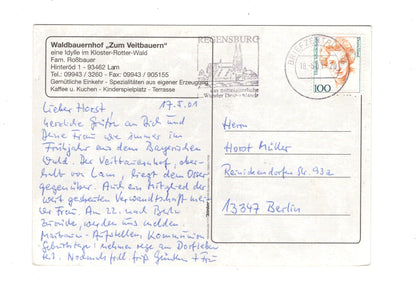 Waldbauernhof „Zum Veitbauern“
eine Idylle im Kloster-Rotter-Wald
Fam. Roßbauer
Hinteröd 1 - 93462 Lam
Tel.: 09943 / 3260 - Fax: 09943 / 905155
Gemütliche Einkehr - Spezialitäten aus eigener Erzeugung
Kaffee u. Kuchen - Kinderspielplatz - Terrasse
REGENSBURG
BRIEFZENTRUM
100
17.5.01
Lieber Horst,
herzliche Grüße an Dich und
Deine Frau wie immer im
Frühjahr aus dem Bayerischen
Wald. Der Veitbauernhof, ober-
halb von Lam, liegt dem Osser
gegenüber. Auch ein Mitglied der
wert geschätzten Verwandtschaft
Frau. Am 22. nach Berlin
werden uns melden.
Maibaum-Aufstellen, Kommunion
Geburtstage: nehmen rege am Dorfleben
teil. Nochmals
Herrn
Horst Müller
Reinickendorfer Str. 93a
13347 Berlin